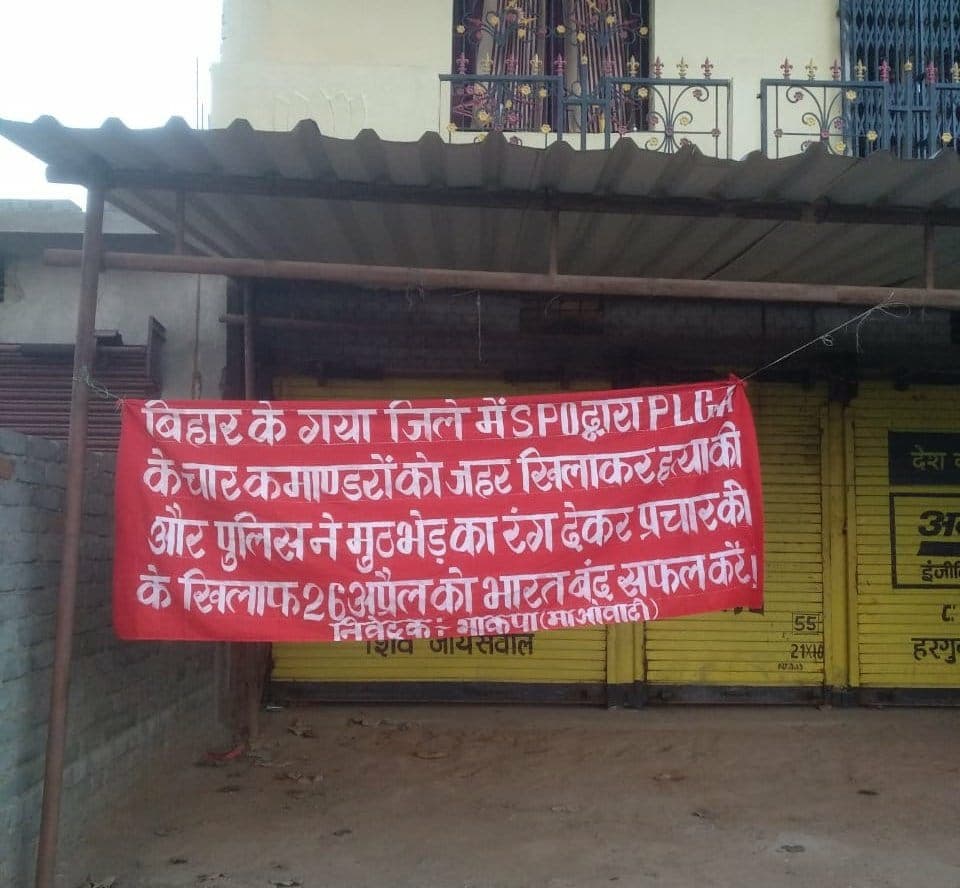 बिहार के गया जिले में SPO द्वारा PLGA
के चार कमाण्डरों को जहर खिलाकर हत्या की
और पुलिस ने मुठभेड़ का रंग देकर प्रचार की
के खिलाफ 26 अप्रैल को भारत बंद सफल करें।
निवेदक : भाकपा (माओवादी)
शिव जायसवाल
55
21X10
देश
इंजी
हरगु